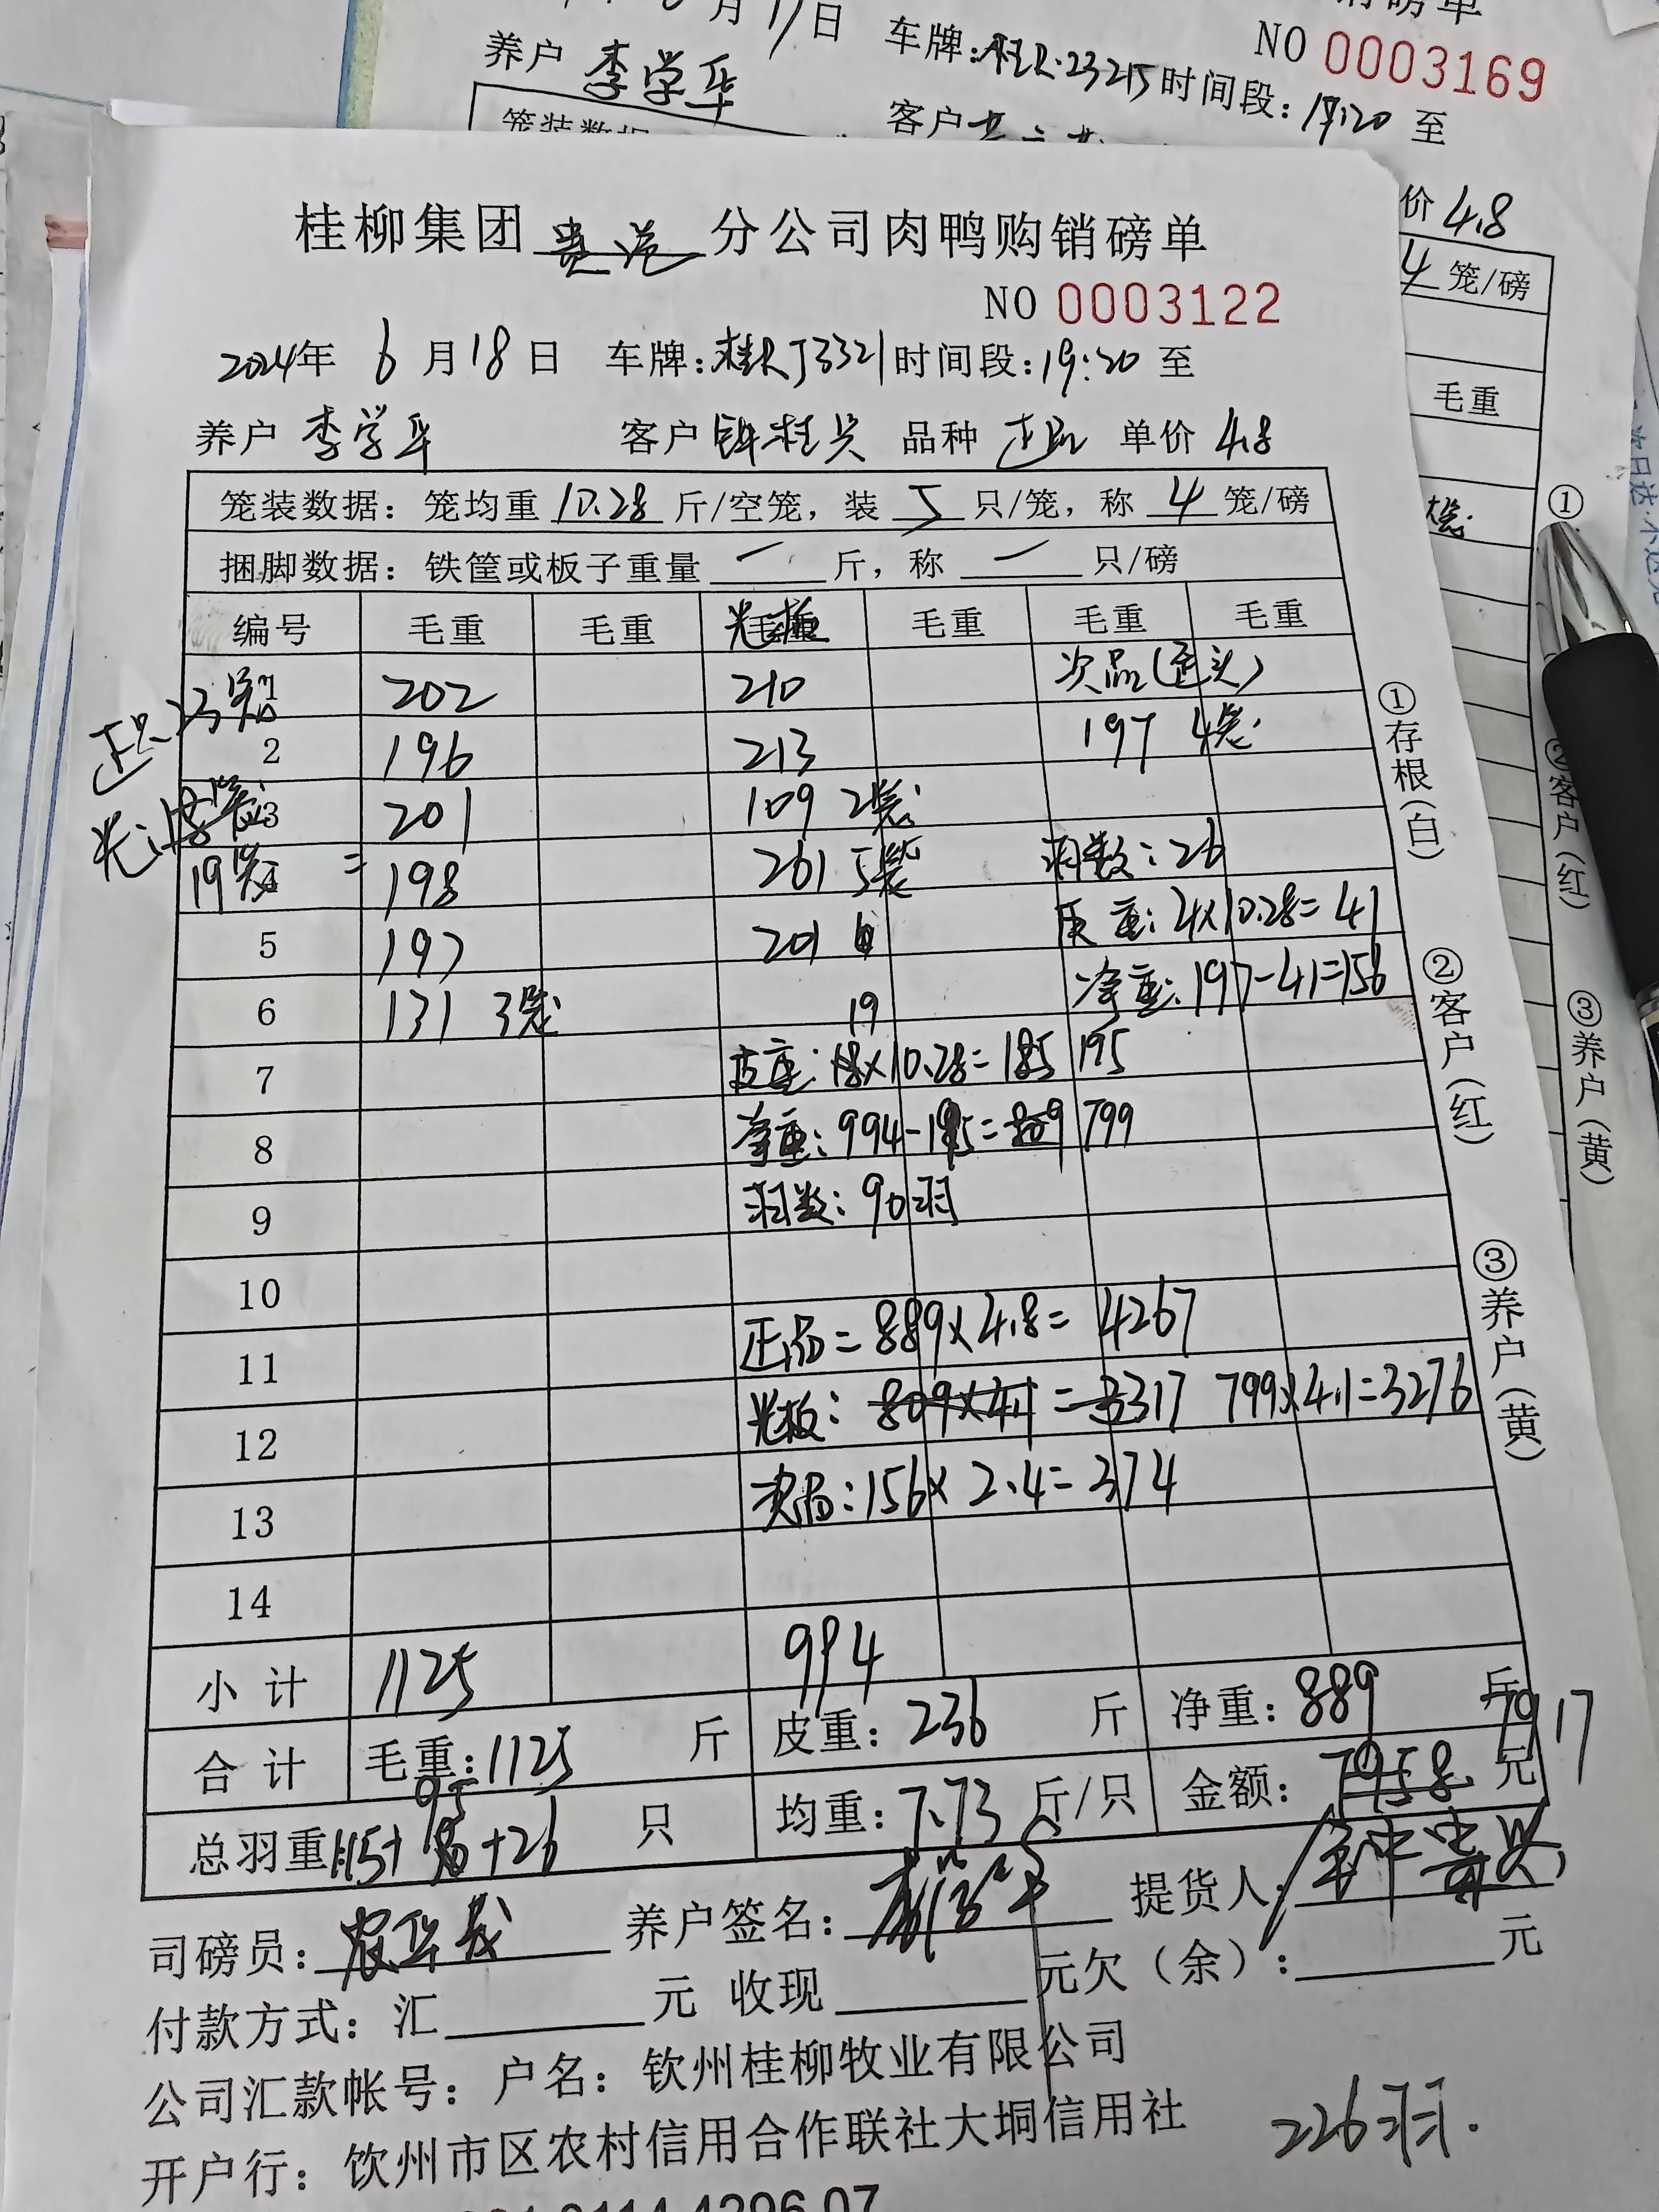 月17日 车牌:桂R·23215 时间段:19:20 至
NO 0003169
养户 李学华 客户
笼装数据
价 4.8
4 笼/磅
毛重
桂柳集团 贵港 分公司肉鸭购销磅单
NO 0003122
2024年 6 月 18 日 车牌:桂RJ3321 时间段:19:20 至
养户 李学华 客户 钟桂兴 品种 正品 单价 4.8
笼装数据:笼均重 10.28 斤/空笼,装 5 只/笼,称 4 笼/磅
捆脚数据:铁筐或板子重量 一 斤,称 一 只/磅
编号 毛重 毛重 光板 毛重 毛重 毛重
正品 23笼 1 202 210 次品(歪头)
2 196 213 197 4笼
光: 3 201 109 2笼
19笼 = 4 198 261 5笼 羽数:26
5 197 201 皮重:4×10.28=41
6 131 3笼 19 净重:197-41=156
7 皮重:18×10.28=185 195
8 净重:994-195=809 799
9 羽数:90羽
10
11 正品=889×4.8=4267
12 光板:809×4.1=3317 799×4.1=3276
13 次品:156×2.4=374
14
小计 1125 994
合计 毛重:1125 斤 皮重:236 斤 净重:889 斤
7917
总羽重 115+95+26 只 均重:7.73 斤/只 金额:7958 元
司磅员: 养户签名: 李学华 提货人:
付款方式:汇 元 收现 元欠(余): 元
公司汇款帐号:户名:钦州桂柳牧业有限公司
开户行:钦州市区农村信用合作联社大垌信用社
226羽.
①存根(白)
②客户(红)
③养户(黄)
①
②客户(红)
③养户(黄)